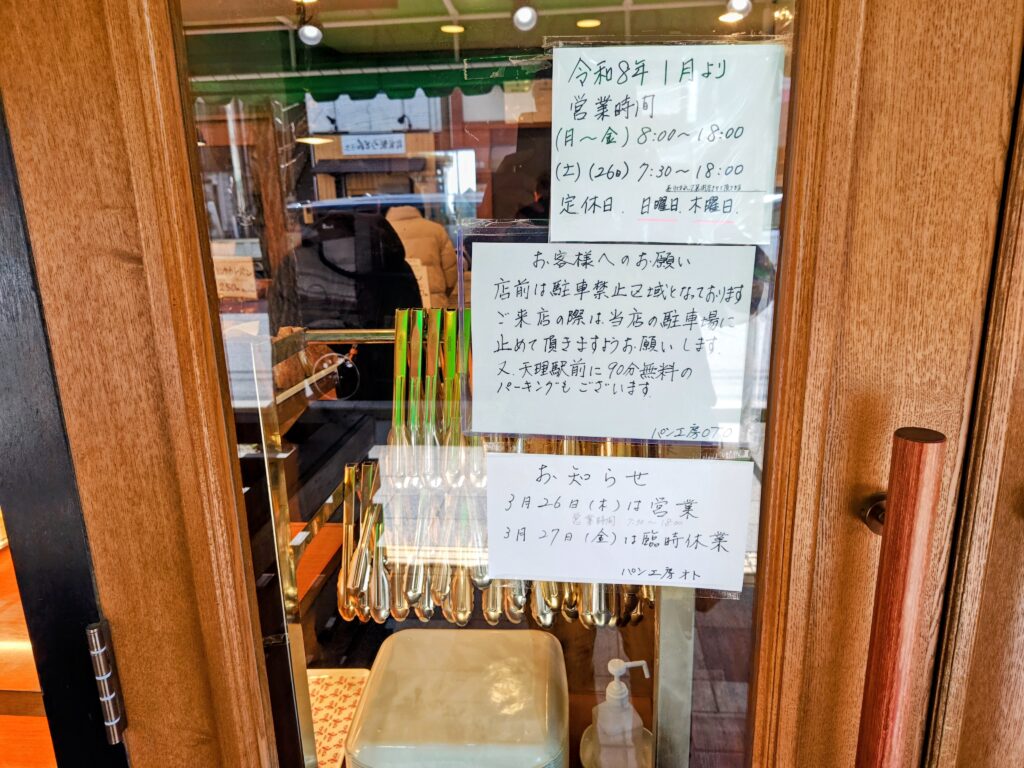 令和8年1月より
営業時間
(月~金) 8:00~18:00
(土)(26日) 7:30~18:00
定休日. 日曜日. 木曜日.
お客様へのお願い
店前は駐車禁止区域となっております
ご来店の際は当店の駐車場に
止めて頂きますようお願いします.
又、天理駅前に90分無料の
パーキングもございます.
パン工房070
お知らせ
3月26日(木)は営業
営業時間 7:30~18:00
3月27日(金)は臨時休業
パン工房オト
250